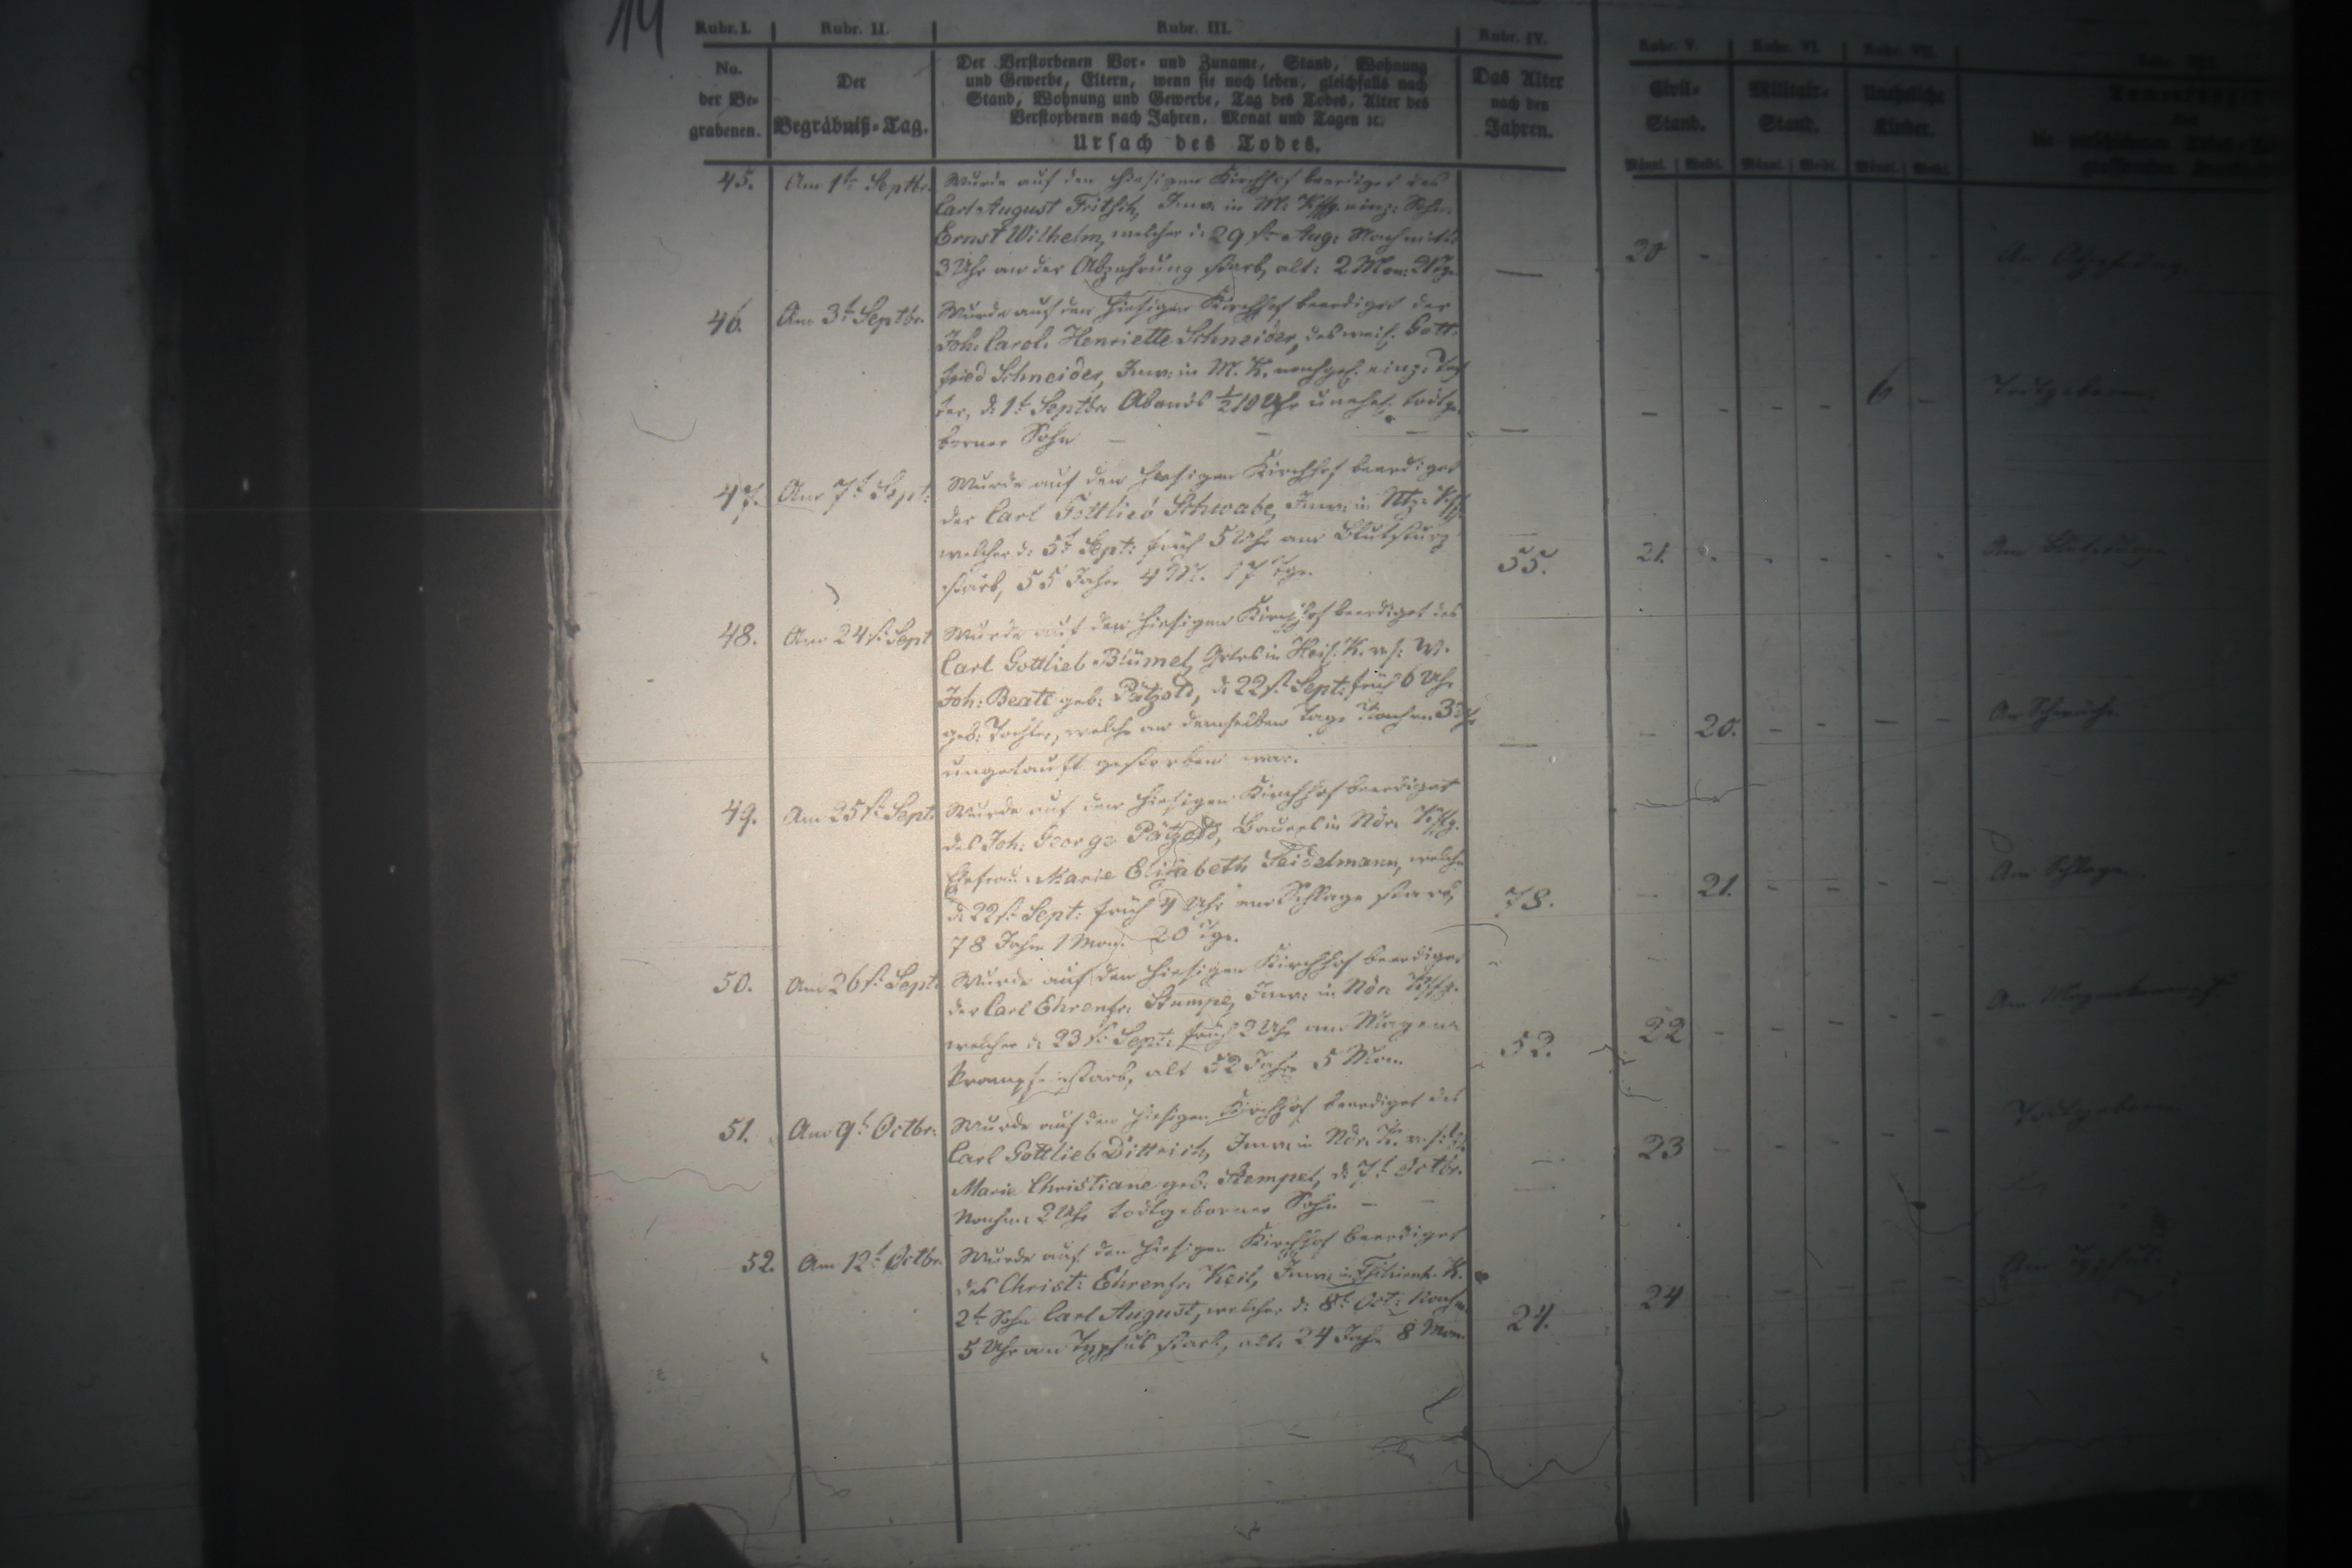 14
Rubr. I. Rubr. II. Rubr. III. Rubr. IV. Rubr. V. Rubr. VI. Rubr. VII.
No. der Begrabenen.
Der Begräbniß-Tag.
Der Verstorbenen Vor- und Zuname, Stand, Wohnung
und Gewerbe, Eltern, wenn sie noch leben, gleichfalls nach
Stand, Wohnung und Gewerbe, Tag des Todes, Alter des
Verstorbenen nach Jahren, Monat und Tagen ꝛc.
Ursach des Todes.
Das Alter nach den Jahren.
Civil-Stand. Militair-Stand. Uneheliche Kinder.
Männl. Weibl. Männl. Weibl. Männl. Weibl.
45. Am 1t Septbr. Wurde auf den hiesigen Kirchhof beerdiget des
Carl August Fritsch, Inw. in M: einz: Sohn
Ernst Wilhelm, welcher d: 29st Aug: Nachmitt:
3 Uhr an der Abzehrung starb, alt: 2 Mon: — 20 - - - - -
46. Am 3t Septbr. Wurde auf den hiesigen Kirchhof beerdiget der
Joh. Carol. Henriette Schneider, des weil. Gott-
fried Schneider, Inw: in M. K. nachgel. einz: Toch
ter, d: 1t Septbr Abends ½10 Uhr unehel. todtge-
borner Sohn — — — — - - - - 6 - Todtgeboren
47. Am 7t Sept: Wurde auf den hiesigen Kirchhof beerdiget
der Carl Gottlieb Schwabe, Inw: in
welcher d: 5t Sept: früh 5 Uhr am Blutsturz
starb, 55 Jahre 4 M. 17 Tge. 55. 21. - - - - - Am Blutsturze
48. Am 24st Sept Wurde auf den hiesigen Kirchhof beerdiget des
Carl Gottlieb Blümel, in K. v. s: W.
Joh: Beate geb: Pätzold, d: 22st Sept: früh 6 Uhr
geb: Tochter, welche an demselben Tage Nachm 3 Uhr
ungetauft gestorben war. — - 20. - - - - An Schwäche
49. Am 25st Sept: Wurde auf den hiesigen Kirchhof beerdiget
des Joh: George Pätzold, Bauers in Ndr:
Ehefrau Marie Elisabeth Seidelmann, welche
d: 22st Sept: früh 4 Uhr am Schlage starb,
78 Jahre 1 Mon: 20 Tge. 78. - 21. - - - - Am Schlage
50. Am 26st Sept: Wurde auf den hiesigen Kirchhof beerdiget
der Carl Ehrenfr: Stumpe, Inw: in Ndr:
welcher d: 23st Sept: früh 2 Uhr am Magen-
krampfe starb, alt 52 Jahre 5 Mon. 52. 22 - - - - - Am Magenkrampfe
51. Am 9t Octbr: Wurde auf den hiesigen Kirchhof beerdiget des
Carl Gottlieb Dittrich, Inw: in Ndr: K. v. s: W.
Marie Christiane geb: Stempel, d: 7t Octbr.
Nachm: 2 Uhr todtgeborner Sohn — — — 23 - - - - - Todtgeboren
52. Am 12t Octbr. Wurde auf den hiesigen Kirchhof beerdiget
des Christ: Ehrenfr. Keil, Inw: in K.
2t Sohn Carl August, welcher d: 8t Oct: Nachm
5 Uhr am Typhus starb, alt: 24 Jahr 8 Mon. 24. 24 - - - - -